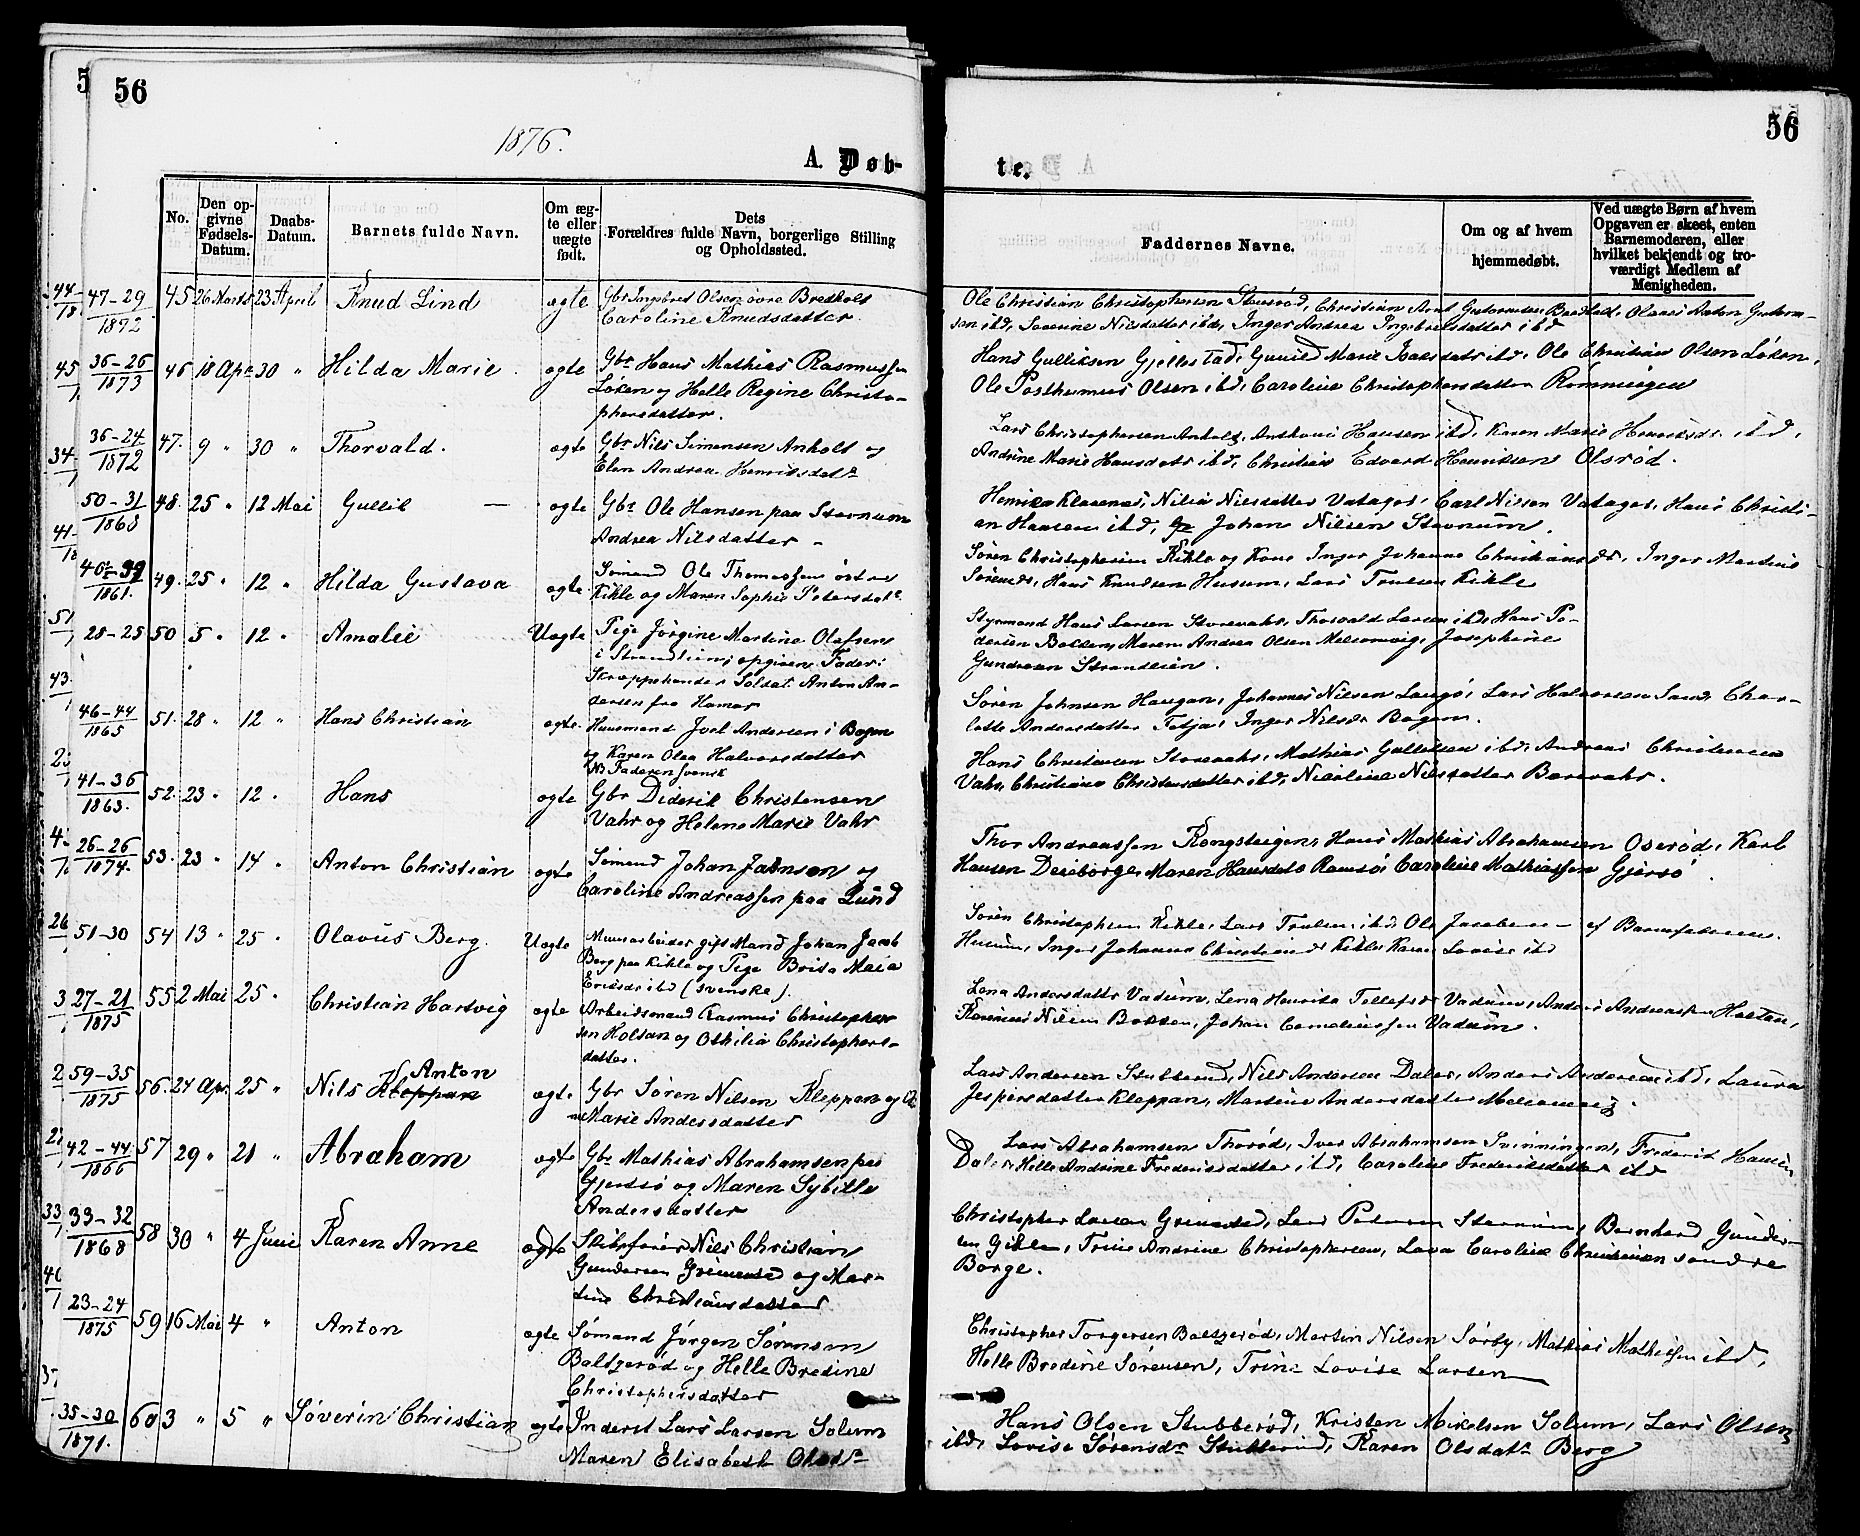 56
56
1876.
A. Døb-
te.
No.
Den op-
givne
Fødsels-
Datum.
Daabs-
Datum.
Barnets fulde Navn.
Om æg-
te eller
uægte
født.
Dets
Forældres fulde Navn, borgerlige Stilling
og Opholdssted.
Faddernes Navne.
Om og af hvem
hjemmedøbt.
Ved uægte Børn af hvem
Opgaven er skeet, enten
Barnemoderen, eller
hvilket bekjendt og tro-
værdigt Medlem af
Menigheden.
47-29
1872
45 26 Marts 23 April Knud Lind ægte Gbr Ingebret Olsen øvre Bredholt
Caroline Knudsdatter.
Ole Christian Christophersen Stuerød, Christian Gutormsen Olaves Anton Gutorm-
sen ibd, Severine Nilsdatter ibd, Inger Andrea Ingebretsdatter ibd
36-26
1873
46 18 Apr 30 " Hilda Marie ægte Gbr Hans Mathias Rasmussen
Løken og Helle Regine Christo-
phersdatter.
Hans Gulliksen Gjellestad, Gunild Marie ibd, Ole Christian Olsen Løken,
Ole Posthumus Olsen ibd, Caroline Christophersdatter Rønningen
36-24
1872
47. 9 " 30 " Thorvald. ægte Gbr Nils Simensen Anholt og
Elen Andrea Henriksdatr
Lars Christophersen Anholt, Anthoni Hansen ibd, Karen Marie Henriksdr. ibd,
Andrine Marie Hansdatr ibd, Christian Edvard Henriksen Olsrød.
50-31
1868
48. 25 " 12 Mai Gullik — ægte Gbr Ole Hansen paa Stevnum
Andrea Nilsdatter -
Nilia Nilsdatter Vatager, Carl Nilsen Vatager, Hans Christi-
an Hansen ibd, Johan Nilsen Stevnum.
1861.
49. 25 " 12 " Hilda Gustava ægte Sømand Ole Thomassen østre
Kikle og Maren Sophie Petersdatr
Søren Christophersen Kikle og Kone Inger Johanne Christiansdr, Inger Martine
Sørensdr, Hans Knudsen Husum, Lars Trulsen Kikle
28-25 50 5 " 12 " Amalie Uægte Pige Jørgine Martine Olafsen
i Strandlien; opgiven Fader:
Skreppehandler Soldat Anton An-
dersen fra Hamar
Styrmand Hans Larsen Storevahr, Thorvald Larsen ibd, Hans Pe-
dersen Bakken, Maren Andrea Olsen Melsomvig, Josephine
Gundersen Strandlien.
46-44
1865
51. 28 " 12 " Hans Christian ægte Huusmand Joel Andersen i Bogen
og Karen Olea Halvorsdatter
NB Faderen svensk
Søren Johnsen Haugan, Johannes Nilsen Langø, Lars Halvorsen Sand, Char-
lotte Andersdatter Tetja, Inger Nilsdr Bogen.
41-36
1863.
52. 23 " 12. " Hans ægte Gbr Diderik Christensen
Vahr og Helene Marie Vahr
Hans Christensen Storevahr, Mathias Gulliksen ibd, Andreas Christensen
Vahr, Christiane Christensdatter ibd, Nicoline Nilsdatter Barevahr.
26-26
1874.
53. 23 " 14 " Anton Christian ægte Sømand Johan Johnsen og
Caroline Andreassen paa Lund
Thor Andreassen Kongsteigen, Hans Mathias Abrahamsen Oserød, Karl
Hansen Maren Hansdatr Ramsø, Caroline Mathiassen Gjersø.
51-30 54 13 " 25 " Olavus Berg. Uægte Muurarbeider gift Mand Johan Jacob
Berg paa Kikle og Pige Brita Maia
Ericsdr ibd (svenske).
Søren Christophersen Kikle, Lars Trulsen ibd, Ole Jacobsen
Husum, Inger Johanne Christiansdr Kikle, Karen Lovise ibd
af Barnefaderen.
27-21
1875
55 2 Mai 25 " Christian Hartvig ægte Arbeidsmand Rasmus Christopher-
sen Holtan og Othilia Christophers-
datter.
Lena Andersdatter Vadum, Lena Henrika Tollefsdr Vadum, Anders Andreassen Holtan,
Rasmus Nilsen Bakken, Johan Corneliussen Vadum.
59-35
1875
56. 24 Apr. 25 " Nils Kleppan Anton ægte Gbr Søren Nilsen Kleppan og
Marie Andersdatter
Lars Andersen Stubberud, Nils Andersen Dalen, Anders Andersen ibd, Laura
Jespersdatter Kleppan, Martine Andersdatter Melsomvig.
42-44
1866
57 29 " 21 " Abraham ægte Gbr Mathias Abrahamsen paa
Gjersø og Maren Sybille
Andersdatter
Lars Abrahamsen Thorød, Iver Abrahamsen Svinningen, Frederik Hansen
Dalen, Helle Andrine Frederiksdatter ibd, Caroline Frederiksdatter ibd
33-32
1868
58 30 " 4 Juni Karen Anne ægte Skibsfører Nils Christian
Gundersen Grimestad og Mar-
tine Christiansdatter
Christopher Larsen Grimestad, Lars Pedersen Stevnum, Bernhard Gunder-
sen Gible, Trine Andrine Christophersen, Lova Caroline Christensen søndre
Borge.
23-24
1875
59 16 Mai 4 " Anton ægte Sømand Jørgen Sørensen
Baltzerød og Helle Bredine
Christophersdatter
Christopher Torgersen Baltzerød, Martin Nilsen Sørby, Mathias Mathiesen ibd,
Helle Bredine Sørensen, Trine Lovise Larsen
35-30
1871.
60 3 " 5 " Søverin Christian ægte Inderst Lars Larsen Solum
Maren Elisabeth Olsdr
Hans Olsen Stubberød, Kristen Mikelsen Solum, Lars Olsen
ibd, Lovise Sørensdr Stubberud, Karen Olsdatr Berg